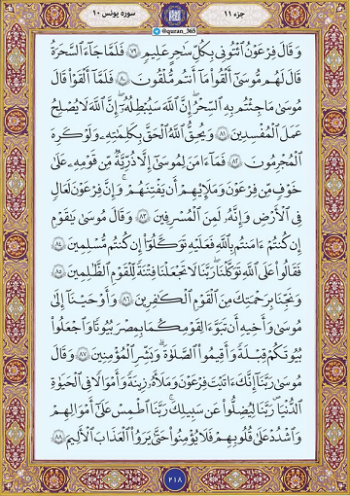 جزء ۱۱
سوره یونس ۱۰
@quran_365
وَقَالَ فِرْعَوْنُ ٱئْتُونِى بِكُلِّ سَٰحِرٍ عَلِيمٍ ۝٧٩ فَلَمَّا جَآءَ ٱلسَّحَرَةُ
قَالَ لَهُم مُّوسَىٰٓ أَلْقُوا۟ مَآ أَنتُم مُّلْقُونَ ۝٨٠ فَلَمَّآ أَلْقَوْا۟ قَالَ
مُوسَىٰ مَا جِئْتُم بِهِ ٱلسِّحْرُ إِنَّ ٱللَّهَ سَيُبْطِلُهُۥٓ إِنَّ ٱللَّهَ لَا يُصْلِحُ
عَمَلَ ٱلْمُفْسِدِينَ ۝٨١ وَيُحِقُّ ٱللَّهُ ٱلْحَقَّ بِكَلِمَٰتِهِۦ وَلَوْ كَرِهَ
ٱلْمُجْرِمُونَ ۝٨٢ فَمَآ ءَامَنَ لِمُوسَىٰٓ إِلَّا ذُرِّيَّةٌ مِّن قَوْمِهِۦ عَلَىٰ
خَوْفٍ مِّن فِرْعَوْنَ وَمَلَإِي۟هِمْ أَن يَفْتِنَهُمْ وَإِنَّ فِرْعَوْنَ لَعَالٍ
فِى ٱلْأَرْضِ وَإِنَّهُۥ لَمِنَ ٱلْمُسْرِفِينَ ۝٨٣ وَقَالَ مُوسَىٰ يَٰقَوْمِ
إِن كُنتُمْ ءَامَنتُم بِٱللَّهِ فَعَلَيْهِ تَوَكَّلُوٓا۟ إِن كُنتُم مُّسْلِمِينَ ۝٨٤
فَقَالُوا۟ عَلَى ٱللَّهِ تَوَكَّلْنَا رَبَّنَا لَا تَجْعَلْنَا فِتْنَةً لِّلْقَوْمِ ٱلظَّٰلِمِينَ ۝٨٥
وَنَجِّنَا بِرَحْمَتِكَ مِنَ ٱلْقَوْمِ ٱلْكَٰفِرِينَ ۝٨٦ وَأَوْحَيْنَآ إِلَىٰ
مُوسَىٰ وَأَخِيهِ أَن تَبَوَّءَا لِقَوْمِكُمَا بِمِصْرَ بُيُوتًا وَٱجْعَلُوا۟
بُيُوتَكُمْ قِبْلَةً وَأَقِيمُوا۟ ٱلصَّلَوٰةَ وَبَشِّرِ ٱلْمُؤْمِنِينَ ۝٨٧ وَقَالَ
مُوسَىٰ رَبَّنَآ إِنَّكَ ءَاتَيْتَ فِرْعَوْنَ وَمَلَأَهُۥ زِينَةً وَأَمْوَٰلًا فِى ٱلْحَيَوٰةِ
ٱلدُّنْيَا رَبَّنَا لِيُضِلُّوا۟ عَن سَبِيلِكَ رَبَّنَا ٱطْمِسْ عَلَىٰٓ أَمْوَٰلِهِمْ
وَٱشْدُدْ عَلَىٰ قُلُوبِهِمْ فَلَا يُؤْمِنُوا۟ حَتَّىٰ يَرَوُا۟ ٱلْعَذَابَ ٱلْأَلِيمَ ۝٨٨
۲۱۸